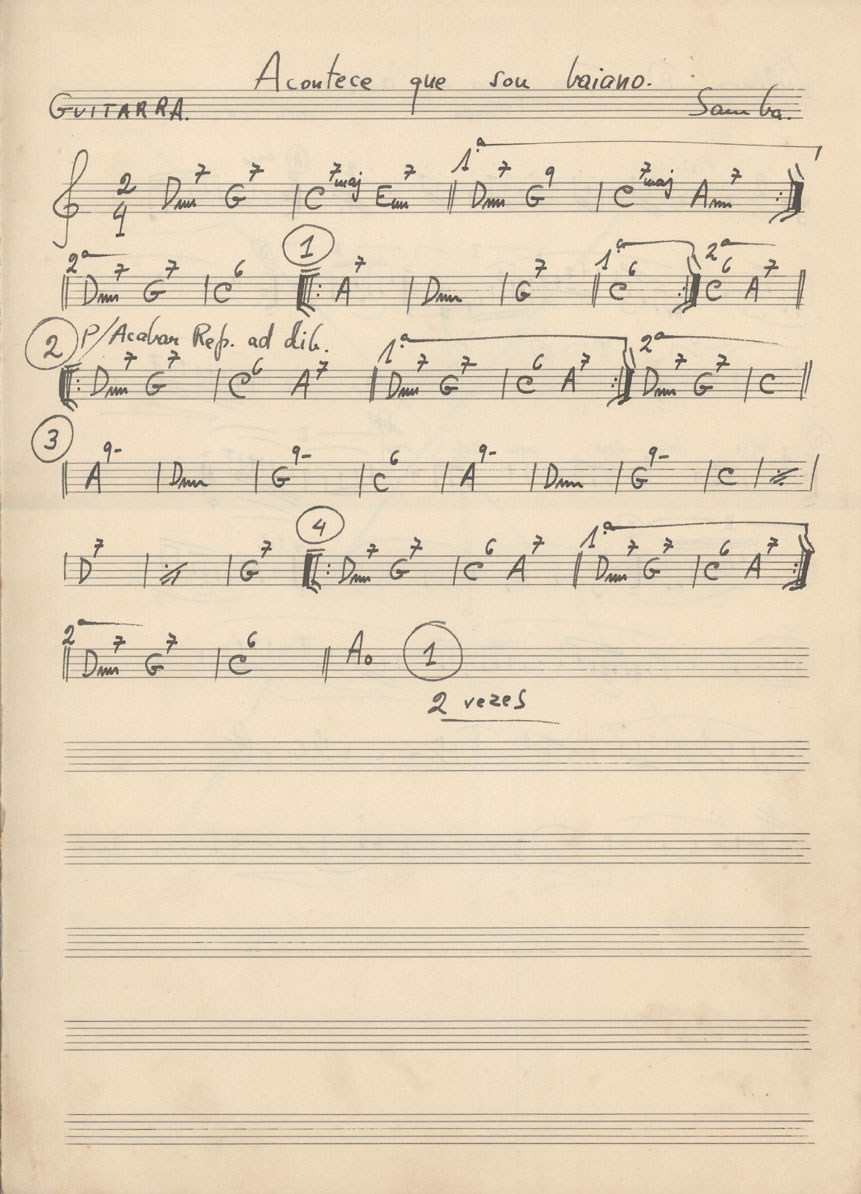 Acontece que sou baiano.
GUITARRA. Samba.
2/4 Dm7 G7 | C7maj Em7 || 1ª Dm7 G9 | C7maj Am7 :||
2ª Dm7 G7 | C6 ① ||: A7 | Dm | G7 || 1ª C6 :|| 2ª C6 A7 ||
② P/Acabar Rep. ad lib.
||: Dm7 G7 | C6 A7 || 1ª Dm7 G7 | C6 A7 :|| 2ª Dm7 G7 | C ||
③
| A9- | Dm | G9- | C6 | A9- | Dm | G9- | C | ٪ |
| D7 | ٪ | G7 ④ ||: Dm7 G7 | C6 A7 || 1ª Dm7 G7 | C6 A7 :||
2ª Dm7 G7 | C6 || Ao ①
2 vezes